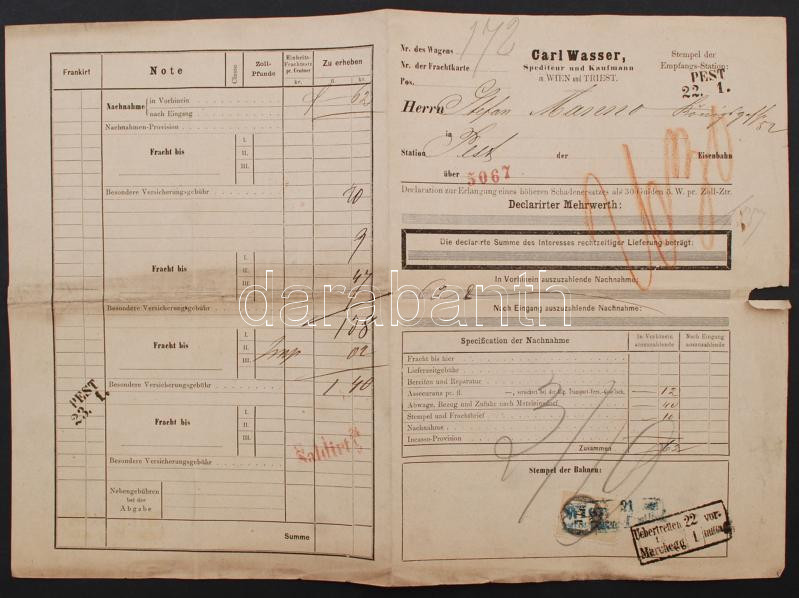 Frankirt
Note
Classe
Zoll-Pfunde
Einheits-Frachtsatz pr. Centner
kr.
Zu erheben
fl. kr.
Nachnahme
in Vorhinein
nach Eingang
62
Nachnahmen-Provision
Fracht bis
I.
II.
III.
Besondere Versicherungsgebühr
20
9
Fracht bis
I.
II.
III.
47
Besondere Versicherungsgebühr
Fracht bis
I.
II.
III.
02
1 40
Besondere Versicherungsgebühr
PEST
23. 1.
Fracht bis
I.
II.
III.
Saldirt
Besondere Versicherungsgebühr
Nebengebühren
bei der
Abgabe
Summe
Nr. des Wagens
172
Nr. der Frachtkarte
Pos.
Carl Wasser,
Spediteur und Kaufmann
in WIEN und TRIEST.
Stempel der
Empfangs-Station:
PEST
22. 1.
Herrn Stefan Manno
52
in
Station Pest der Eisenbahn
über 5067
Declaration zur Erlangung eines höheren Schadenersatzes als 30 Gulden ö. W. pr. Zoll-Ztr.
Declarirter Mehrwerth:
Die declarirte Summe des Interesses rechtzeitiger Lieferung beträgt:
In Vorhinein auszuzahlende Nachnahme:
Nach Eingang auszuzahlende Nachnahme:
Specification der Nachnahme
In Vorhinein auszuzahlende
Nach Eingang auszuzahlende
Fracht bis hier
Lieferzeitgebühr
Bereifen und Reparatur
Assecuranz pr. fl. 12
Abwage, Bezug und Zufuhr nach Matzleinsdorf 40
Stempel und Frachtbrief 10
Nachnahme
Incasso-Provision
Zusammen 62
Stempel der Bahnen:
Uebertreten 22 vor-
Marchegg 1 mittags
darabanth